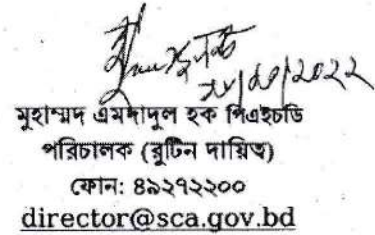 মুহাম্মদ এমদাদুল হক পিএইচডি
পরিচালক (রুটিন দায়িত্ব)
ফোন: ৪৯২৭২২০০
director@sca.gov.bd